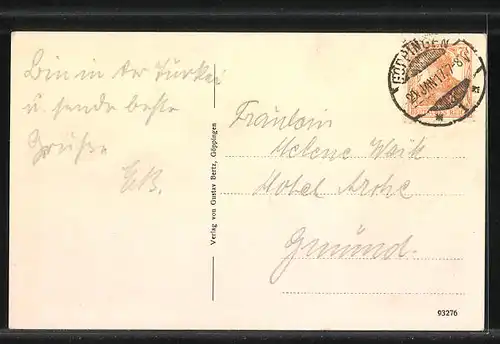 Bin in der Türkei
u. sende beste
Grüße
EB.
Verlag von Gustav Bertz, Göppingen
GÖPPINGEN
20 JAN 17. 7-8
Fräulein
Helene Waik
Hotel Arche
Gmünd.
93276